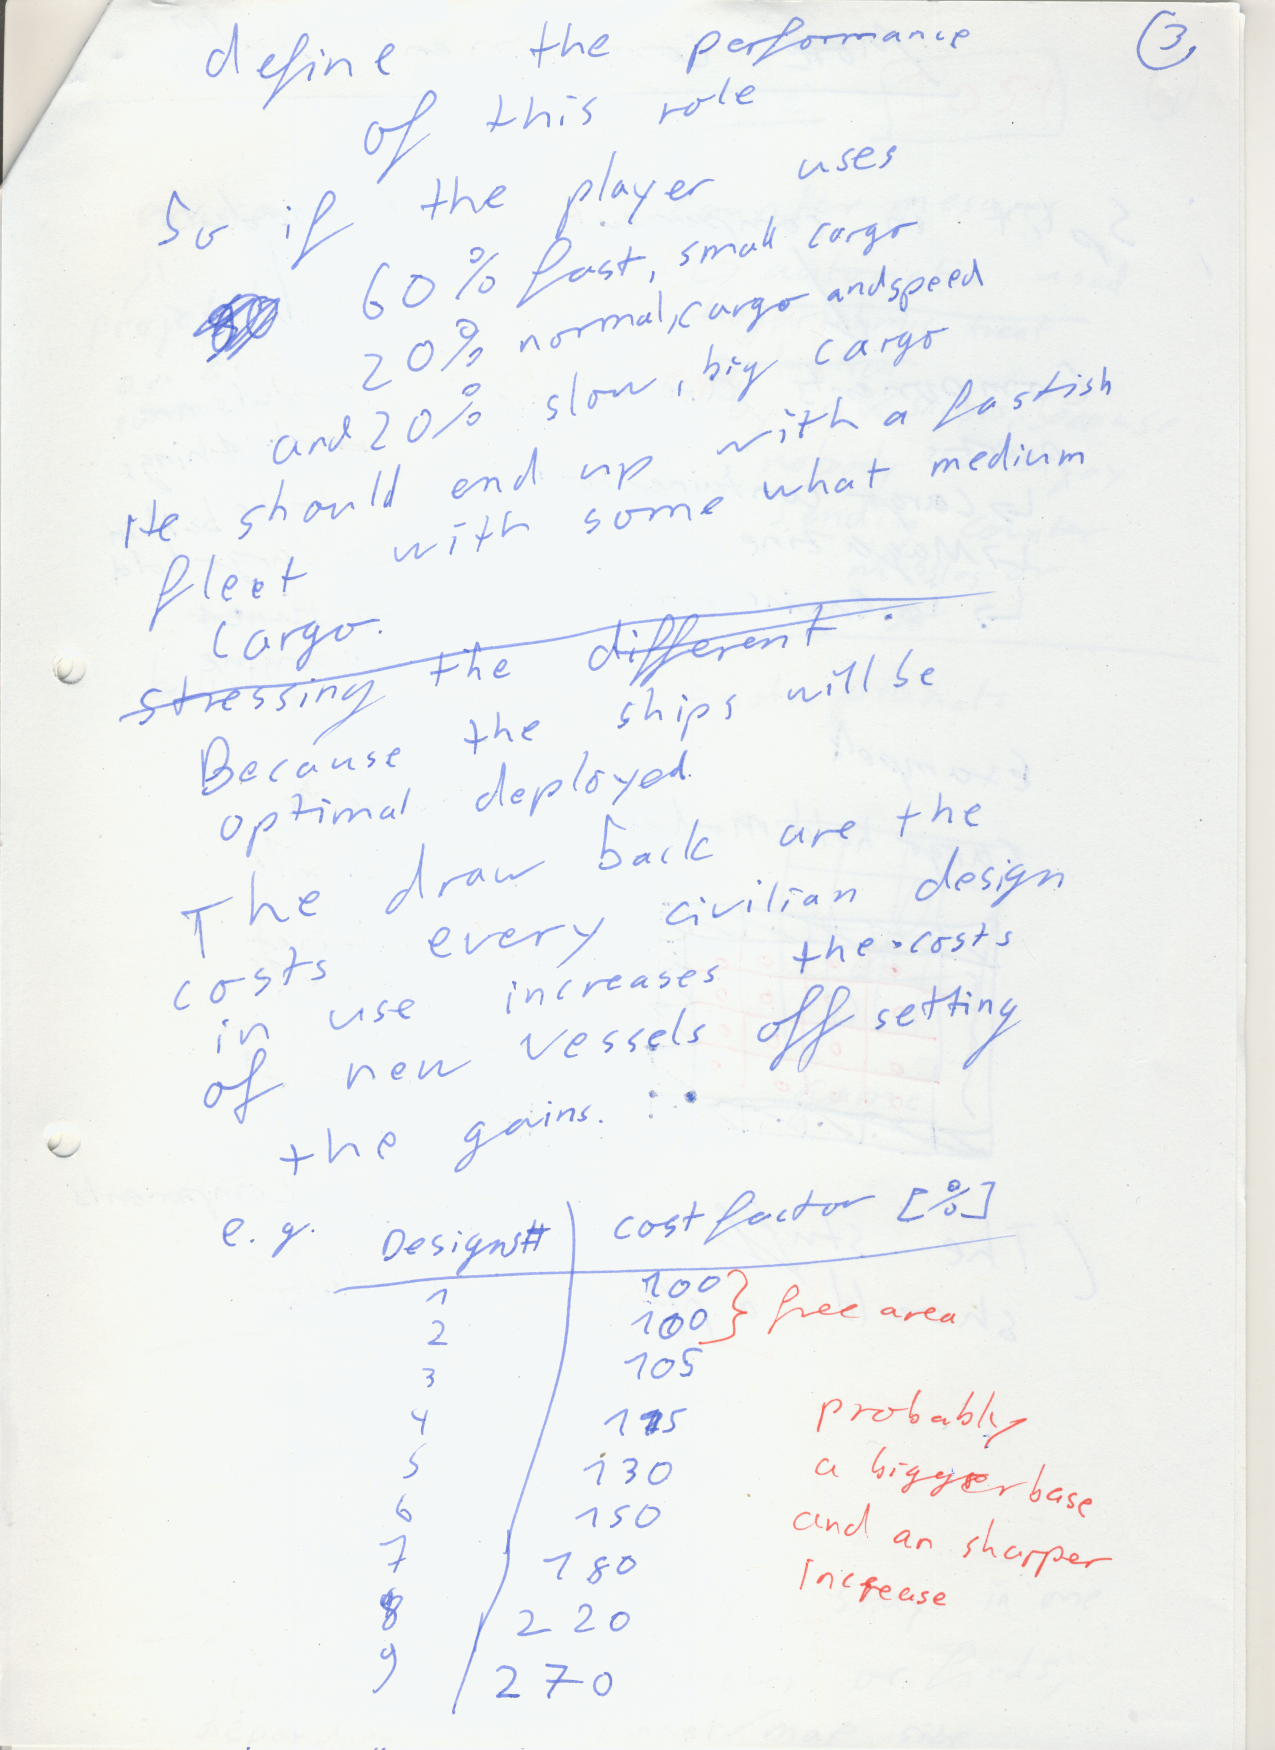 define the performance
③
of this role
So if the player uses
60% fast, small cargo
20% normal, cargo and speed
and 20% slow, big cargo
He should end up with a fastish
fleet with some what medium
cargo.
stressing the different
Because the ships will be
optimal deployed.
The draw back are the
costs every civilian design
in use increases the costs
of new vessels off setting
the gains.
e.g. Designs# cost factor [%]
1 100
2 100 } free area
3 105
4 115
5 130
6 150
7 180
8 220
9 270
probably
a bigger base
and an sharper
increase